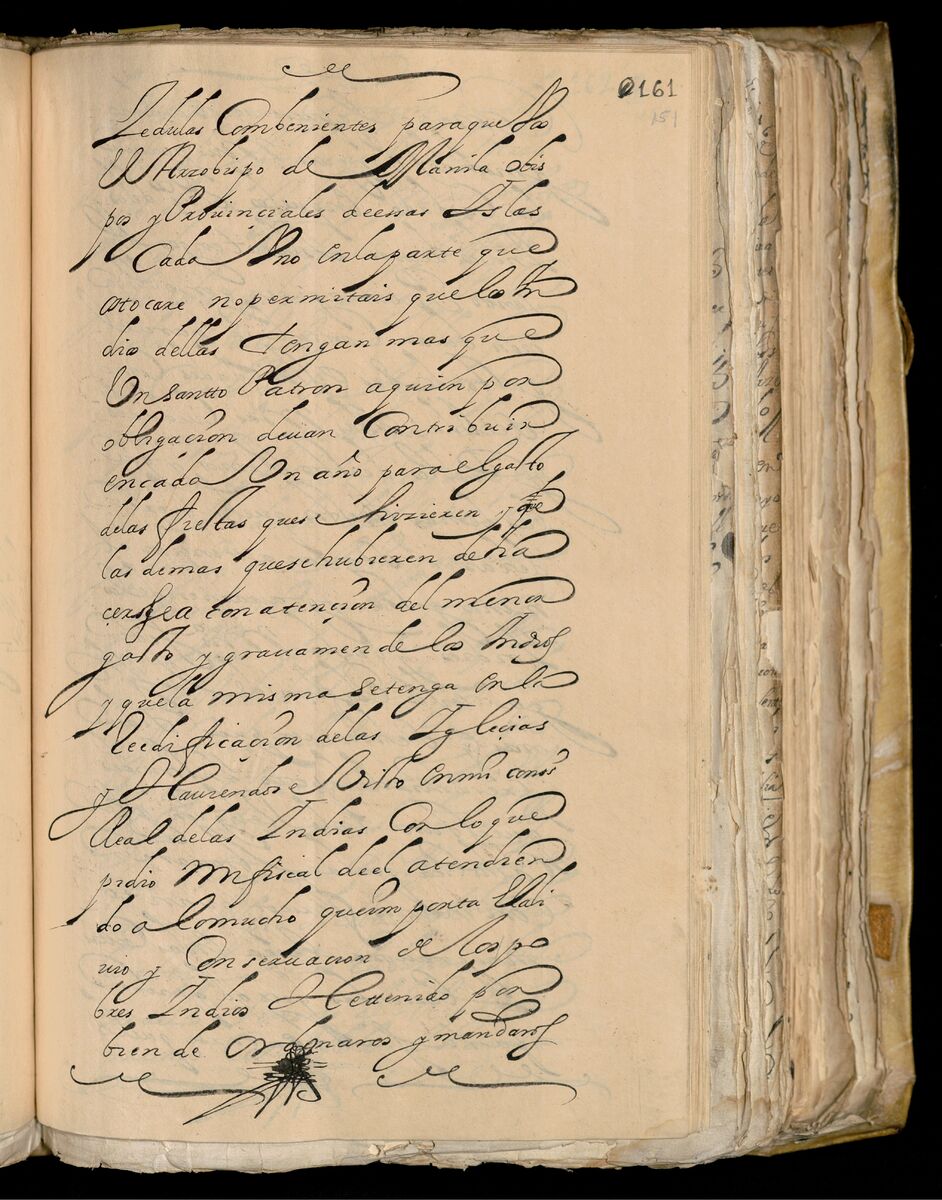 0161
151
Zedulas Combenientes para que Vos
El Arzobispo de Manila obis
pos y Provinciales de essas Islas
Cada Vno en la parte que
os tocare no permitais que los In
dios dellas tengan mas que
Un santto Patron a quien por
obligacion deuan Contribuir
en cada Vn año para el gasto
de las fiestas que se hizieren y que
las demas que se hubieren de ha
cer sea con atencion del menor
gasto y grauamen de los Indios
y que la misma se tenga en la
Reedificacion de las Iglecias
y Hauiendose Visto en mi conso
Real de las Indias con lo que
pidio mi fiscal de el atendien
do a lo mucho que importa El ali
uio y Conseruacion de los po
bres Indios He tenido por
bien de ordenaros y mandaros